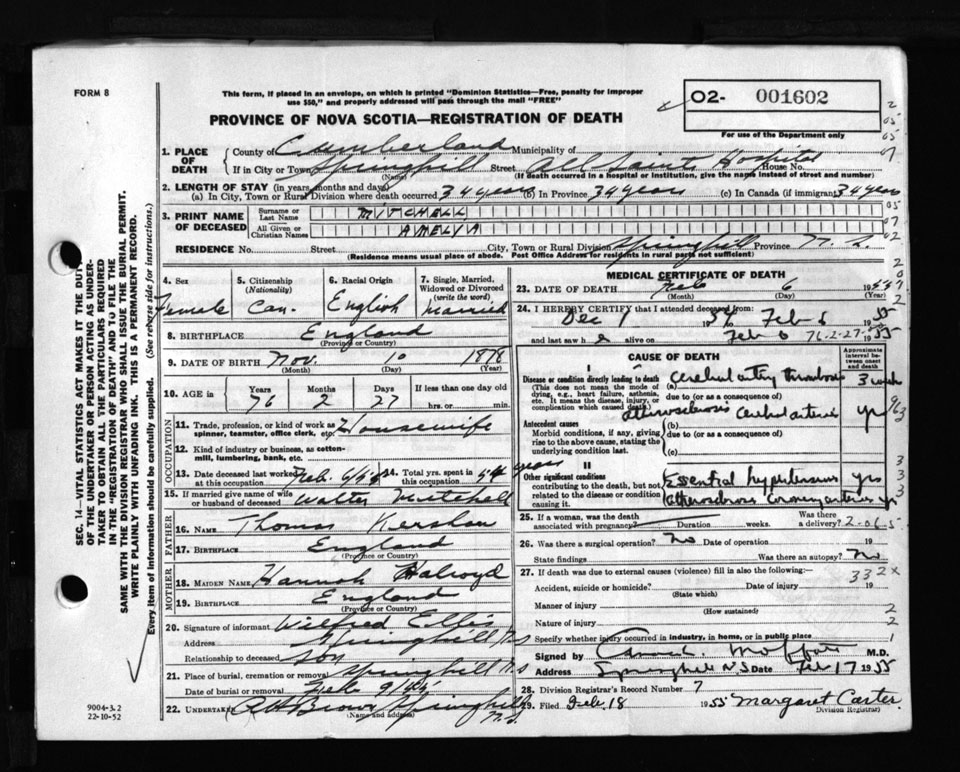 FORM 8
This form, if placed in an envelope, on which is printed "Dominion Statistics—Free, penalty for improper
use $50," and properly addressed will pass through the mail "FREE"
PROVINCE OF NOVA SCOTIA—REGISTRATION OF DEATH
O2- 001602
For use of the Department only
1. PLACE OF DEATH
County of Cumberland Municipality of
If in City or Town Springhill Street All Saint Hospital House No.
(Name) (If death occurred in a hospital or institution, give the name instead of street and number)
2. LENGTH OF STAY (in years, months and days)
(a) In City, Town or Rural Division where death occurred 34 years (b) In Province 34 years (c) In Canada (if immigrant) 34 years
3. PRINT NAME OF DECEASED
Surname or Last Name MITCHELL
All Given or Christian Names AMELYA
RESIDENCE No. Street City, Town or Rural Division Springhill Province N. S.
(Residence means usual place of abode. Post Office Address for residents in rural parts not sufficient)
4. Sex Female
5. Citizenship (Nationality) Can.
6. Racial Origin English
7. Single, Married, Widowed or Divorced (write the word) Married
8. BIRTHPLACE England
(Province or Country)
9. DATE OF BIRTH Nov. 10 1878
(Month) (Day) (Year)
10. AGE in Years Months Days If less than one day old
76 2 27 hrs. or min.
OCCUPATION
11. Trade, profession, or kind of work as
spinner, teamster, office clerk, etc. Housewife
12. Kind of industry or business, as cotten-
mill, lumbering, bank, etc.
13. Date deceased last worked at this occupation Feb. 6/55
14. Total yrs. spent in this occupation 54 years
15. If married give name of wife
or husband of deceased Walter Mitchell
FATHER
16. NAME Thomas Kershaw
17. BIRTHPLACE England
(Province or Country)
MOTHER
18. MAIDEN NAME Hannah Halroyd
19. BIRTHPLACE England
(Province or Country)
20. Signature of informant Wilfred Ellis
Address Springhill NS
Relationship to deceased son
21. Place of burial, cremation or removal Springhill NS
Date of burial or removal Feb 9/55
22. Undertaker RH Brown Springhill N.S.
(Name and address)
MEDICAL CERTIFICATE OF DEATH
23. DATE OF DEATH Feb 6 1955
(Month) (Day) (Year)
24. I HEREBY CERTIFY that I attended deceased from:
Dec 1 1954 Feb 6 1955
and last saw h alive on Feb 6 76-2-27 1955
CAUSE OF DEATH
Approximate interval between onset and death
I
Disease or condition directly leading to death
(This does not mean the mode of
dying, e.g., heart failure, asthenia,
etc. It means the disease, injury, or
complication which caused death)
(a) cerebral artery thrombosis 3 weeks
due to (or as a consequence of)
Antecedent causes
Morbid conditions, if any, giving
rise to the above cause, stating the
underlying condition last.
(b) atherosclerosis cerebral arteries yrs
due to (or as a consequence of)
(c)
II
Other significant conditions
contributing to the death, but not
related to the disease or condition
causing it.
Essential hypertension yrs
atherosclerosis coronary arteries yrs
25. If a woman, was the death
associated with pregnancy? Duration weeks. Was there a delivery? 2-06-5
26. Was there a surgical operation? No Date of operation 19
State findings Was there an autopsy? No
27. If death was due to external causes (violence) fill in also the following:— 332x
Accident, suicide or homicide? Date of injury 19
(State which)
Manner of injury
(How sustained)
Nature of injury
Specify whether injury occurred in industry, in home, or in public place
Signed by Moffatt M.D.
Address Springhill N.S Date Feb 17 1955
28. Division Registrar's Record Number 7
29. Filed Feb. 18 1955 Margaret Carter
Division Registrar)
SEC. 14—VITAL STATISTICS ACT MAKES IT THE DUTY
OF THE UNDERTAKER OR PERSON ACTING AS UNDER-
TAKER TO OBTAIN ALL THE PARTICULARS REQUIRED
IN THE "REGISTRATION OF DEATH" AND TO FILE THE
SAME WITH THE DIVISION REGISTRAR WHO SHALL ISSUE THE BURIAL PERMIT.
WRITE PLAINLY WITH UNFADING INK. THIS IS A PERMANENT RECORD.
Every item of information should be carefully supplied. (See reverse side for instructions.)
9004-3.2
22-10-52